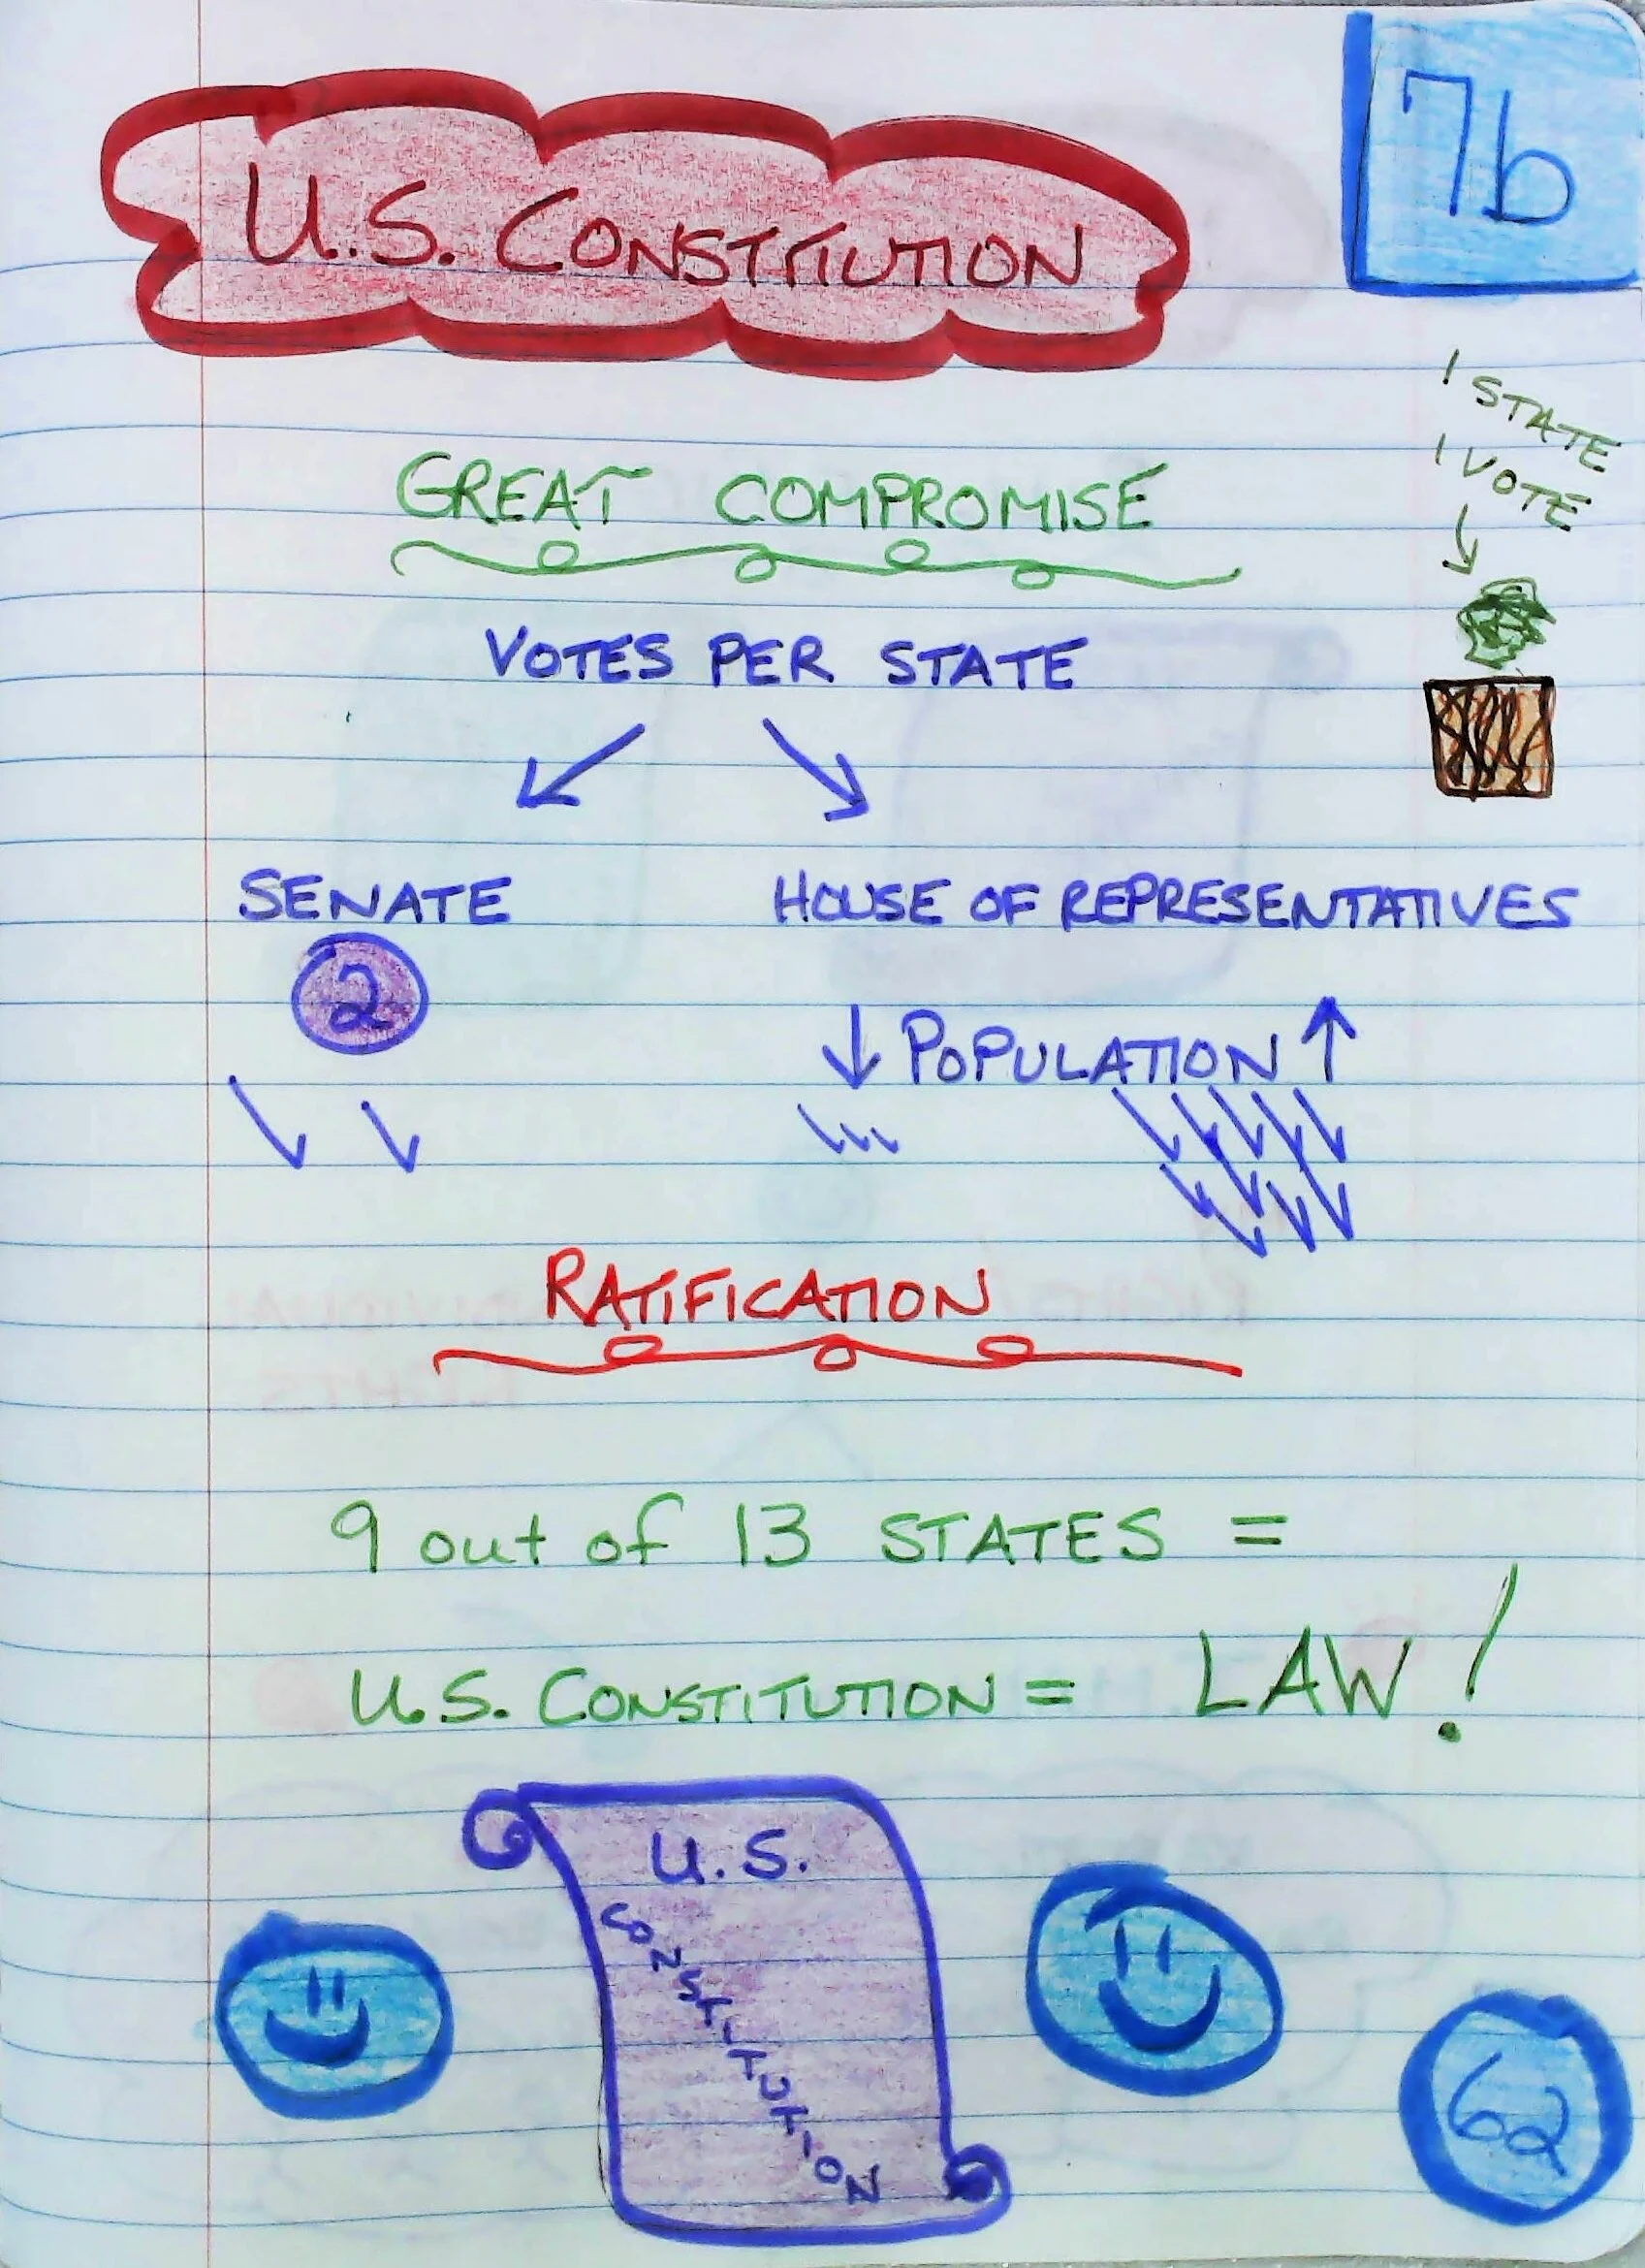 7b
U.S. CONSTITUTION
1 STATE
1 VOTE
GREAT COMPROMISE
VOTES PER STATE
SENATE
HOUSE OF REPRESENTATIVES
2
POPULATION
RATIFICATION
9 out of 13 STATES =
U.S. CONSTITUTION = LAW!
U.S.
CONSTITUTION
62